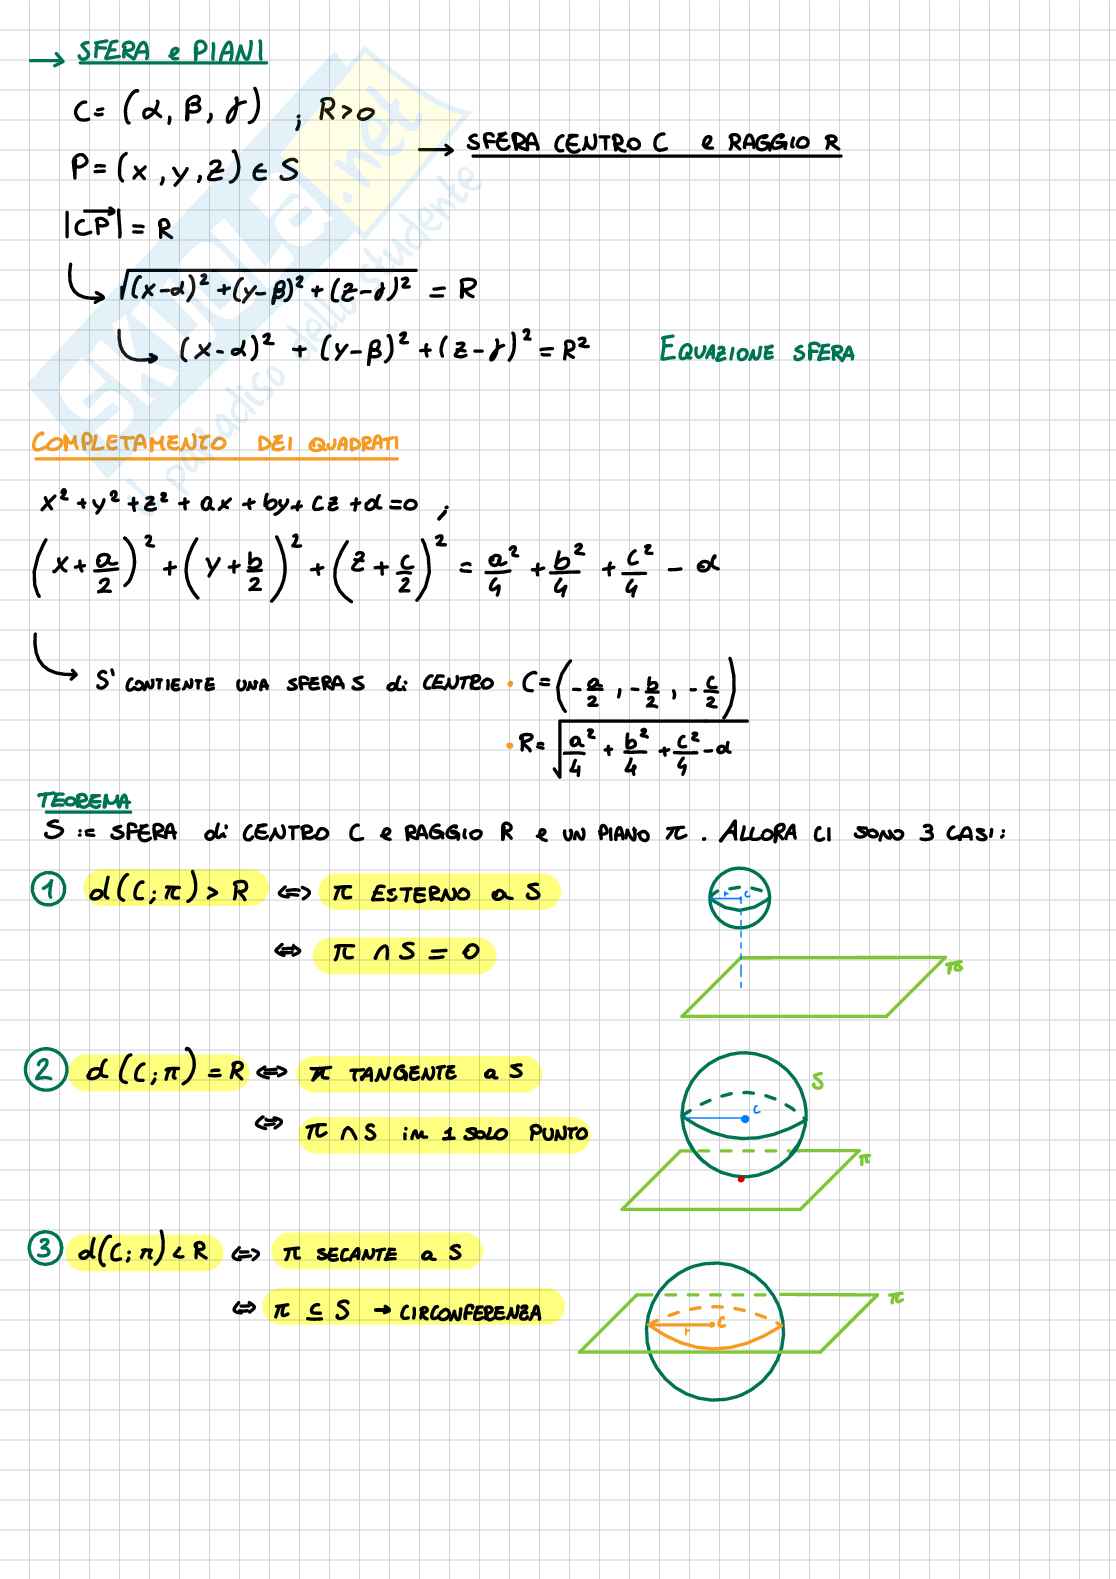 → SFERA e PIANI
C = (α, β, γ) ; R > 0
→ SFERA CENTRO C e RAGGIO R
P = (x, y, z) ∈ S
|CP→| = R
√((x-α)² + (y-β)² + (z-γ)²) = R
(x-α)² + (y-β)² + (z-γ)² = R² EQUAZIONE SFERA
COMPLETAMENTO DEI QUADRATI
x² + y² + z² + ax + by + cz + d = 0 ;
(x + a/2)² + (y + b/2)² + (z + c/2)² = a²/4 + b²/4 + c²/4 - d
S' CONTIENTE UNA SFERA S di CENTRO • C = (-a/2, -b/2, -c/2)
• R = √(a²/4 + b²/4 + c²/4 - d)
TEOREMA
S := SFERA di CENTRO C e RAGGIO R e UN PIANO π. ALLORA CI SONO 3 CASI:
① d(C; π) > R ⇔ π ESTERNO a S
⇔ π ∩ S = 0
r C
π
② d(C; π) = R ⇔ π TANGENTE a S
⇔ π ∩ S in 1 SOLO PUNTO
S
C
π
③ d(C; π) < R ⇔ π SECANTE a S
⇔ π ⊆ S → CIRCONFERENZA
π
C
r
SKUOLA.net
il paradiso dello studente